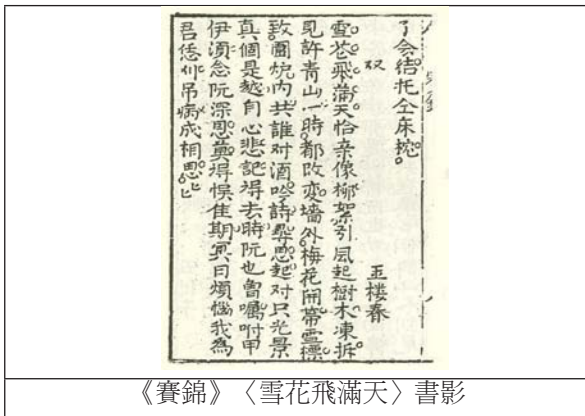 了会结托仝床枕。
双 玉楼春
雪苍飛蒲天恰亲像柳絮引風起樹木凍拆
見許青山一時都改变墻外梅花開帶雪標
致圍炉内共誰对酒吟詩尋思起对只光景
真個是越自心悲記得去時阮也曾囑咐甲
伊須念阮深恩莫得悮佳期冥日煩惱我為
君恁刈吊病成相思
《賽錦》〈雪花飛滿天〉書影